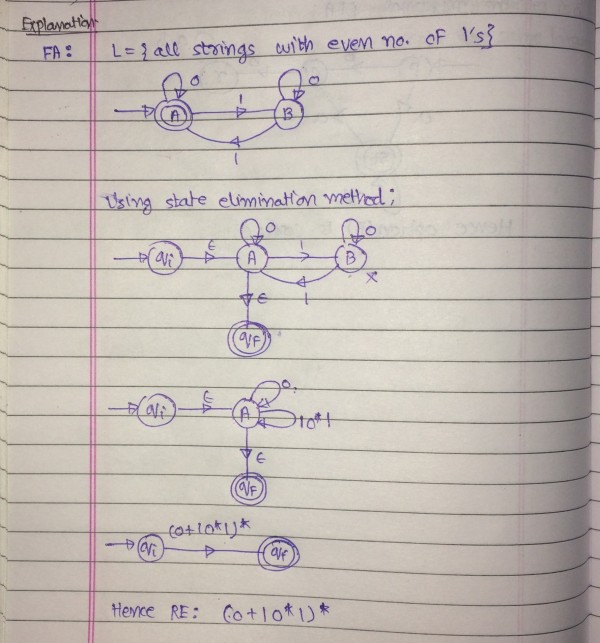 Explanation
FA: L = { all strings with even no. of 1's}
0 0
A 1 B
1
Using state elimination method;
0 0
qi ε A 1 B
ε 1 x
qf
0
qi ε A 10*1
ε
qf
(0+10*1)*
qi qf
Hence RE: (0+10*1)*